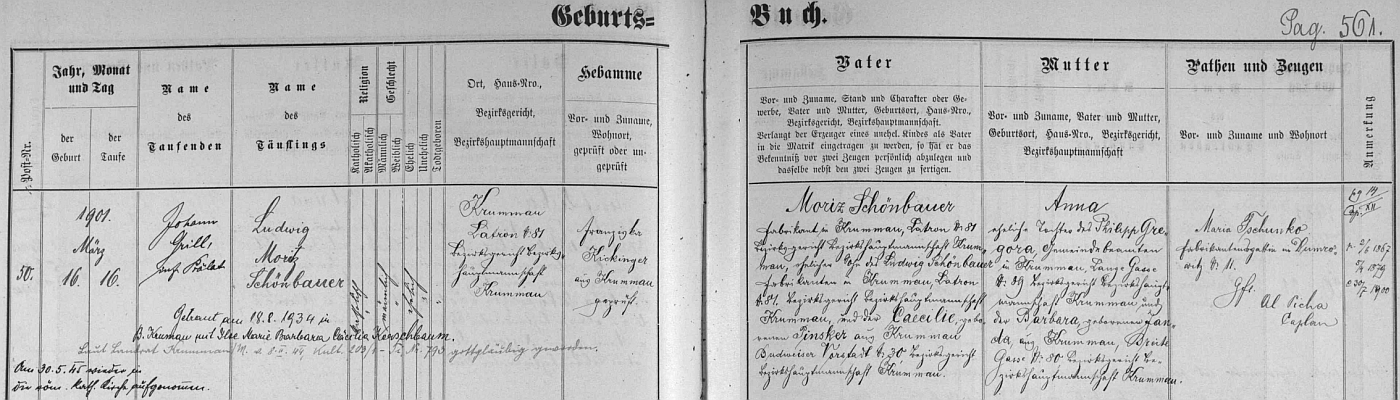 Geburts=
Buch.
Pag. 561.
Post-Nr.
Jahr, Monat
und Tag
der
Geburt
der
Taufe
Name
des
Taufenden
Name
des
Täuflings
Religion
Katholisch
Akatholisch
Geschlecht
Männlich
Weiblich
Ehelich
Unehelich
Todtgeboren
Ort, Haus-Nro.,
Bezirksgericht,
Bezirkshauptmannschaft
Hebamme
Vor- und Zuname,
Wohnort,
geprüft oder un-
geprüft
Vater
Vor- und Zuname, Stand und Charakter oder Ge-
werbe, Vater und Mutter, Geburtsort, Haus-Nro.,
Bezirksgericht, Bezirkshauptmannschaft.
Verlangt der Erzeuger eines unehel. Kindes als Vater
in die Matrik eingetragen zu werden, so hat er das
Bekenntniß vor zwei Zeugen persönlich abzulegen und
dasselbe nebst den zwei Zeugen zu fertigen.
Mutter
Vor- und Zuname, Vater und Mutter,
Geburtsort, Haus-Nro., Bezirksgericht,
Bezirkshauptmannschaft
Pathen und Zeugen
Vor- und Zuname und Wohnort
Anmerkung
50.
1901.
März
16. 16.
Johann
Grill
Ludwig
Moriz
Schönbauer
katholisch
männlich
ehelich
Krummau
Latron N: 81
Bezirksgericht Bezirks-
hauptmannschaft
Krummau
Franziska
Kickinger
aus Krummau
geprüft.
Getraut am 18.8.1934 in
B. Krumau mit Ilse Marie Barbara Cäcilia Kerschbaum.
Laut Landrat Krummau/M. gottgläubig geworden.
Am 30.5.45 wieder in
die röm. kath. Kirche aufgenommen.
Moriz Schönbauer
Fabrikant in Krummau, Latron N: 81
Bezirksgericht Bezirkshauptmannschaft Krum-
mau, ehelicher Sohn des Ludwig Schönbauer
Fabrikanten in Krummau, Latron
N: 81. Bezirksgericht Bezirkshauptmannschaft
Krummau, und der Caecilie, gebo-
renen Pinsker aus Krummau
Budweiser Vorstadt N: 30 Bezirksgericht
Bezirkshauptmannschaft Krummau.
Anna
eheliche Tochter des Philipp Gre-
gora, Gemeindebeamten
in Krummau, Lange Gasse
N: 39 Bezirksgericht Bezirkshaupt-
mannschaft Krummau und
der Barbara, geborenen Jan-
da, aus Krummau, Breite
Gasse N: 80 Bezirksgericht Be-
zirkshauptmannschaft Krummau.
Maria Tschunko
Fabrikantensgattin in
N: 11.
Gft.
Al Picha
Caplan
1867
1879
1900